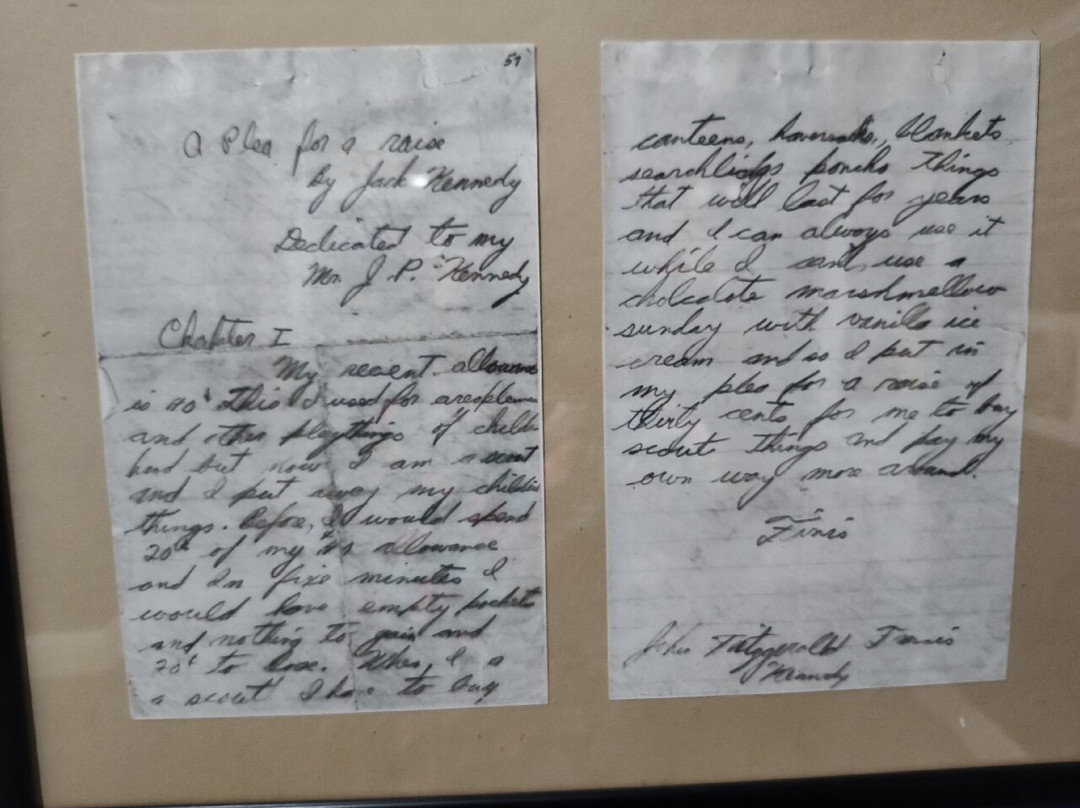 57
A Plea for a raise
By Jack Kennedy
Dedicated to my
Mr. J. P. Kennedy
Chapter I
My recent allowance
is 40¢ This I used for areoplanes
and other playthings of child-
hood but now I am a scout
and I put away my childish
things. Before, I would spend
20¢ of my ¢.40 allowance
and In five minutes I
would have empty pockets
and nothing to gain and
20¢ to lose. When I a
a scout I have to buy
canteens, haversacks, blankets
searchlidgs poncho things
that will last for years
and I can always use it
while I cant use a
cholcalote marshmellow
sunday with vanilla ice
cream and so I put in
my plea for a raise of
thirty cents for me to buy
scout things and pay my
own way more around.
Finis
John Fitzgerald Francis
Kennedy